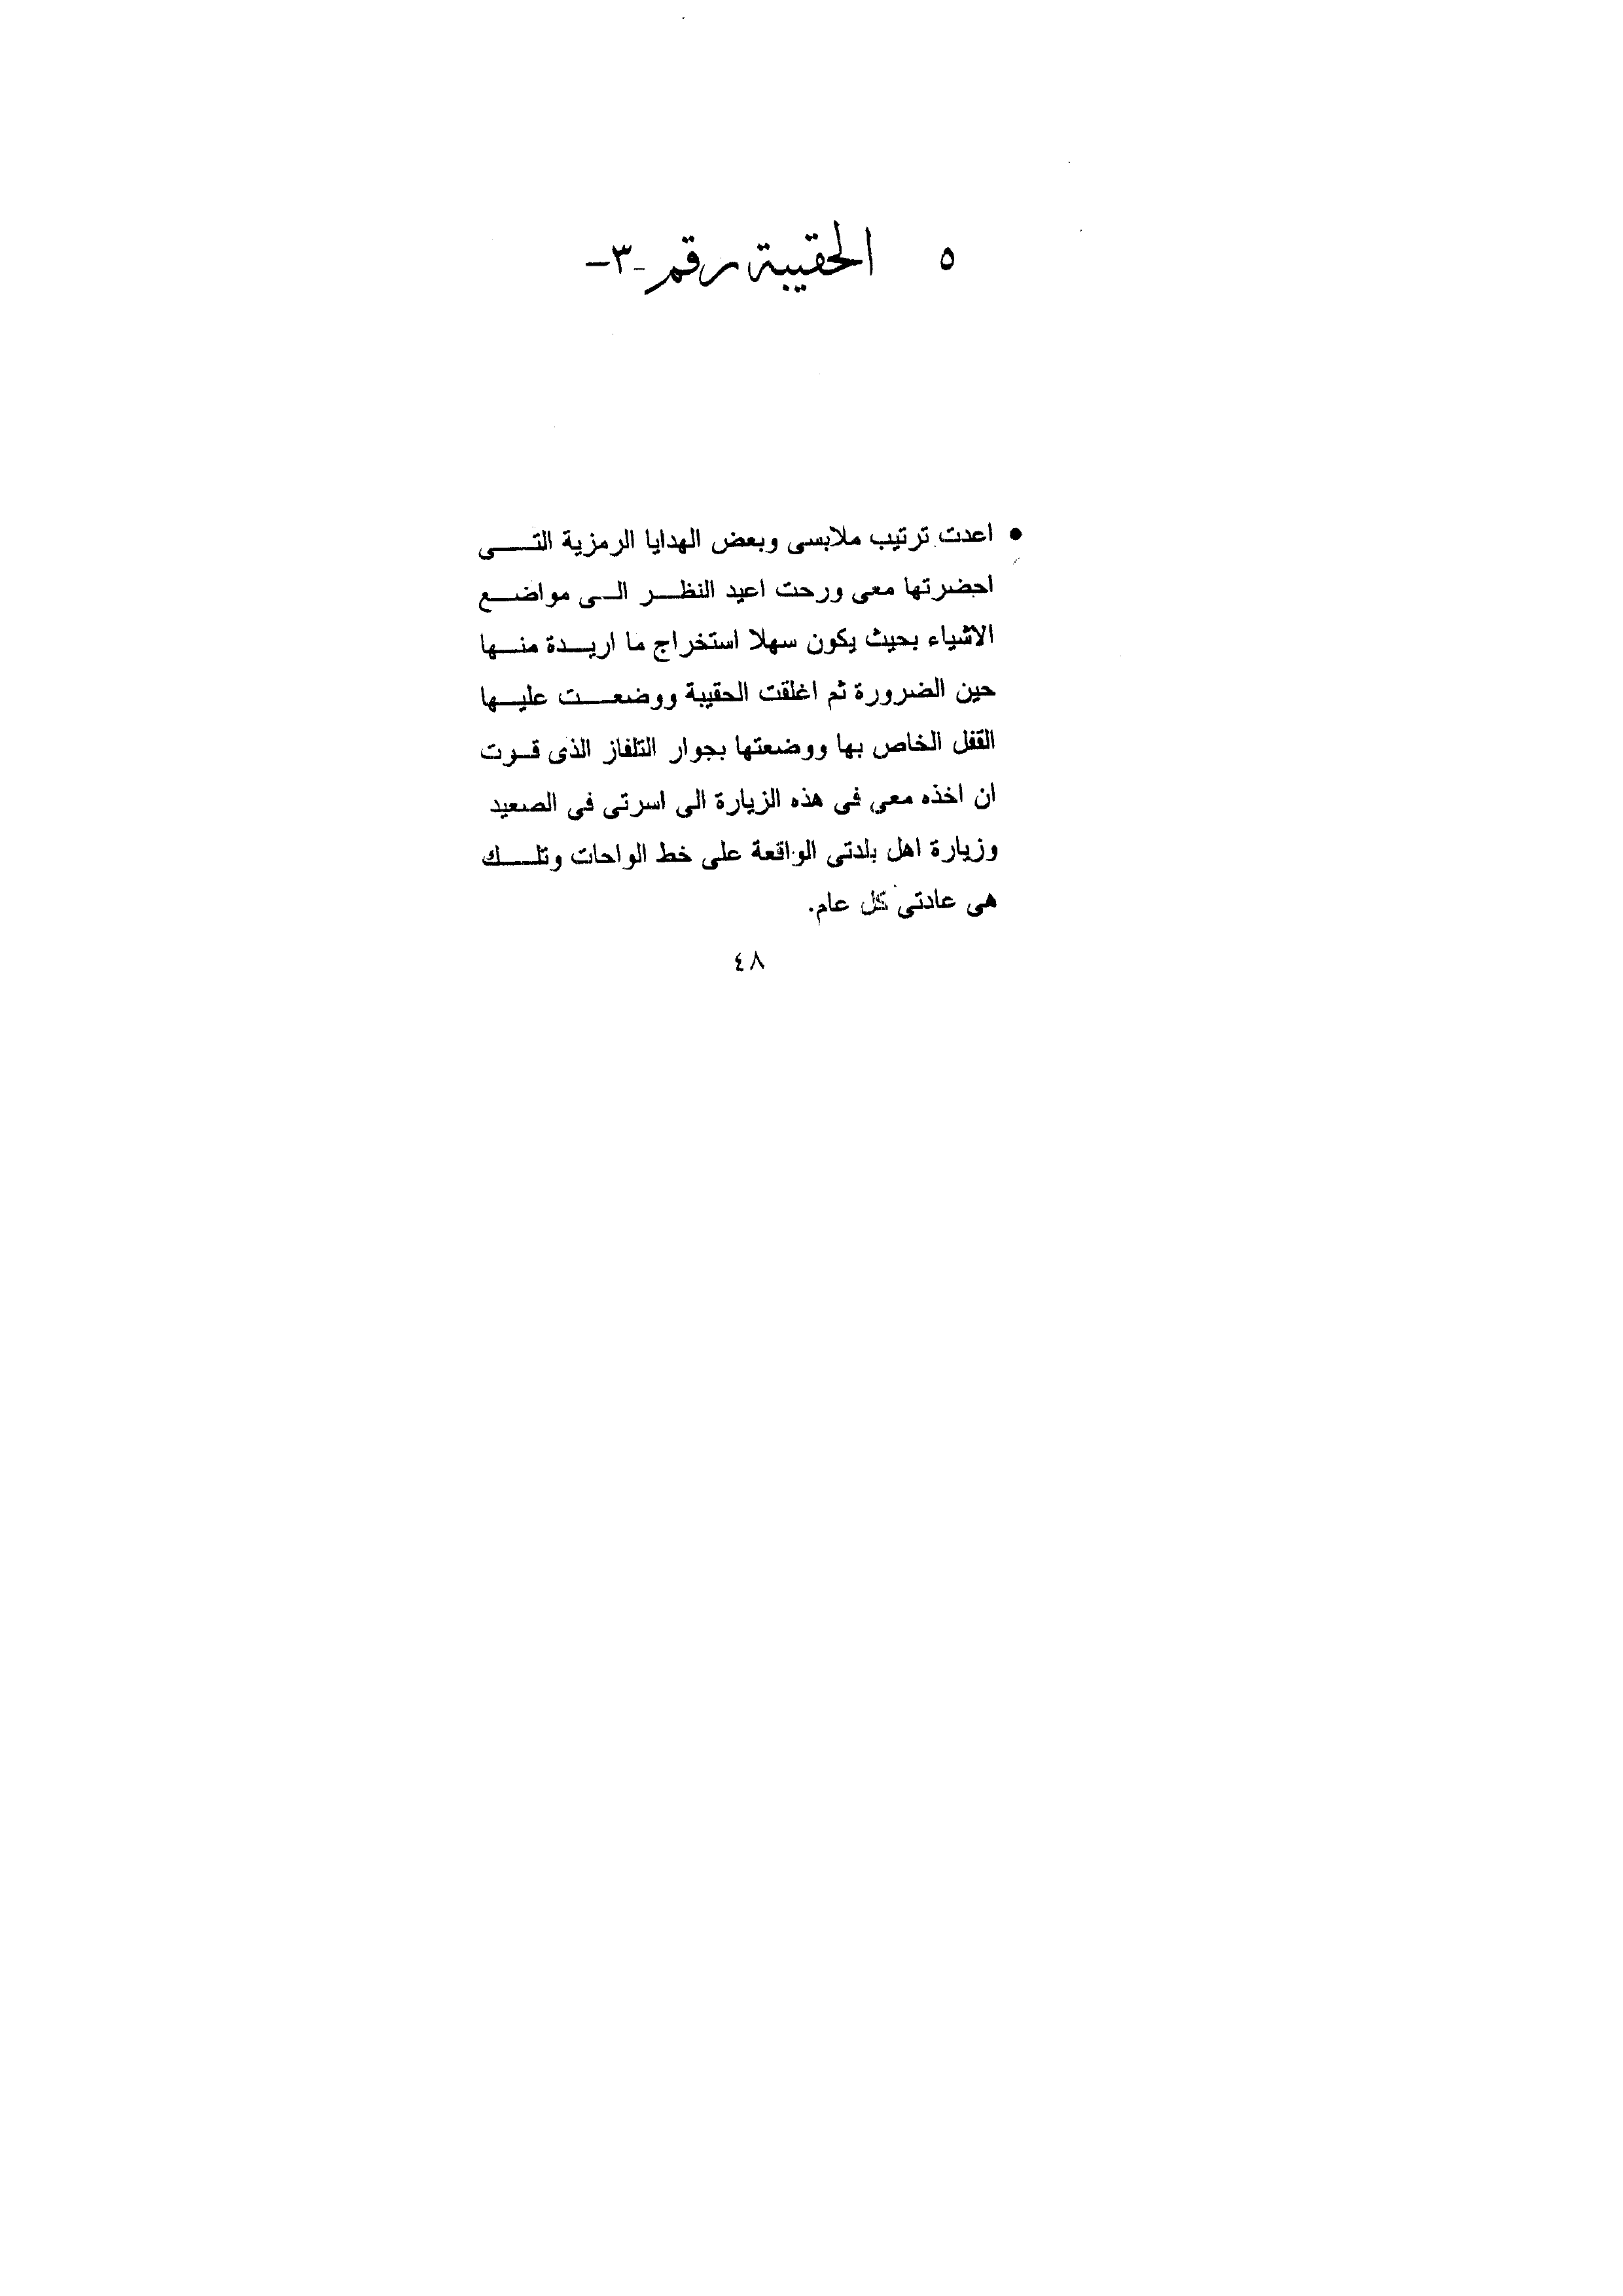 ٥ الحقيبة رقم -٣-
● اعدت ترتيب ملابسى وبعض الهدايا الرمزية التـــــى
احضرتها معى ورحت اعيد النظـــر الــى مواضـــع
الاشياء بحيث يكون سهلا استخراج ما اريـــدة منـــها
حين الضرورة ثم اغلقت الحقيبة ووضعـــــت عليـــها
القفل الخاص بها ووضعتها بجوار التلفاز الذى قــرت
ان اخذه معى فى هذه الزيارة الى اسرتى فى الصعيد
وزيارة اهل بلدتى الواقعة على خط الواحات وتلـــــك
هى عادتى كل عام.
٤٨